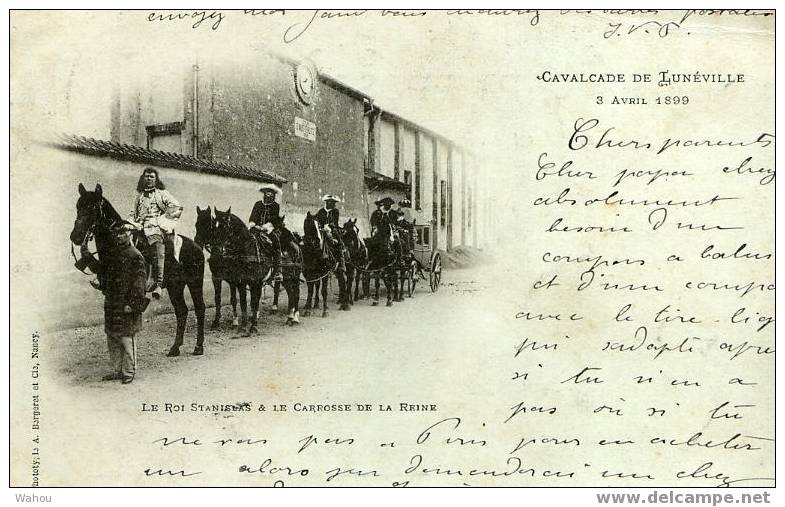 envoyez moi
J.V.P.
CAVALCADE DE LUNÉVILLE
3 AVRIL 1899
Chers parents
Cher papa chez
absolument
besoin d'un
compas a balus
et d'un compa
avec le tire-lig
qui s'adapte apre
si tu n'en a
pas ou si tu
ne vas pas a Paris pour en acheter
un alors demanderai un chez
LE ROI STANISLAS & LE CARROSSE DE LA REINE
Phototypie A. Bergeret et Cie, Nancy.
Wahou
http://www.delcampe.net/